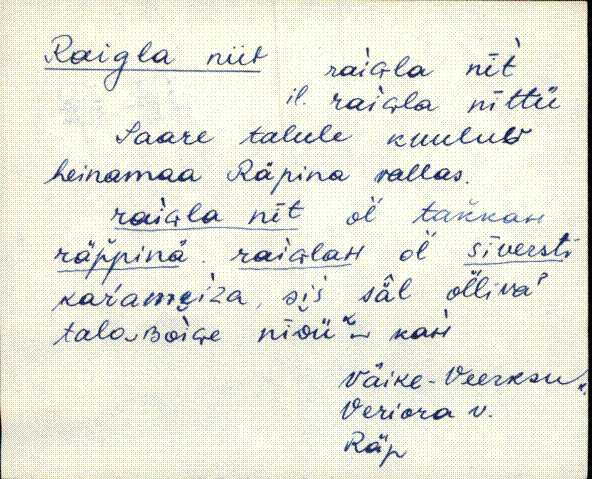 Raigla niit raiɢla nīt
il. raiɢla nīttü
Saare talule kuulub
heinamaa Räpina vallas.
raiɢla nīt ol̄ takkaн
räppinä. raiɢlaн ol̄ sīversti
karameiza, sis säl olliva
talo‿ʙoiɢe nīdü kaн
Väike-Veerksu k.
Veriora v.
Räp